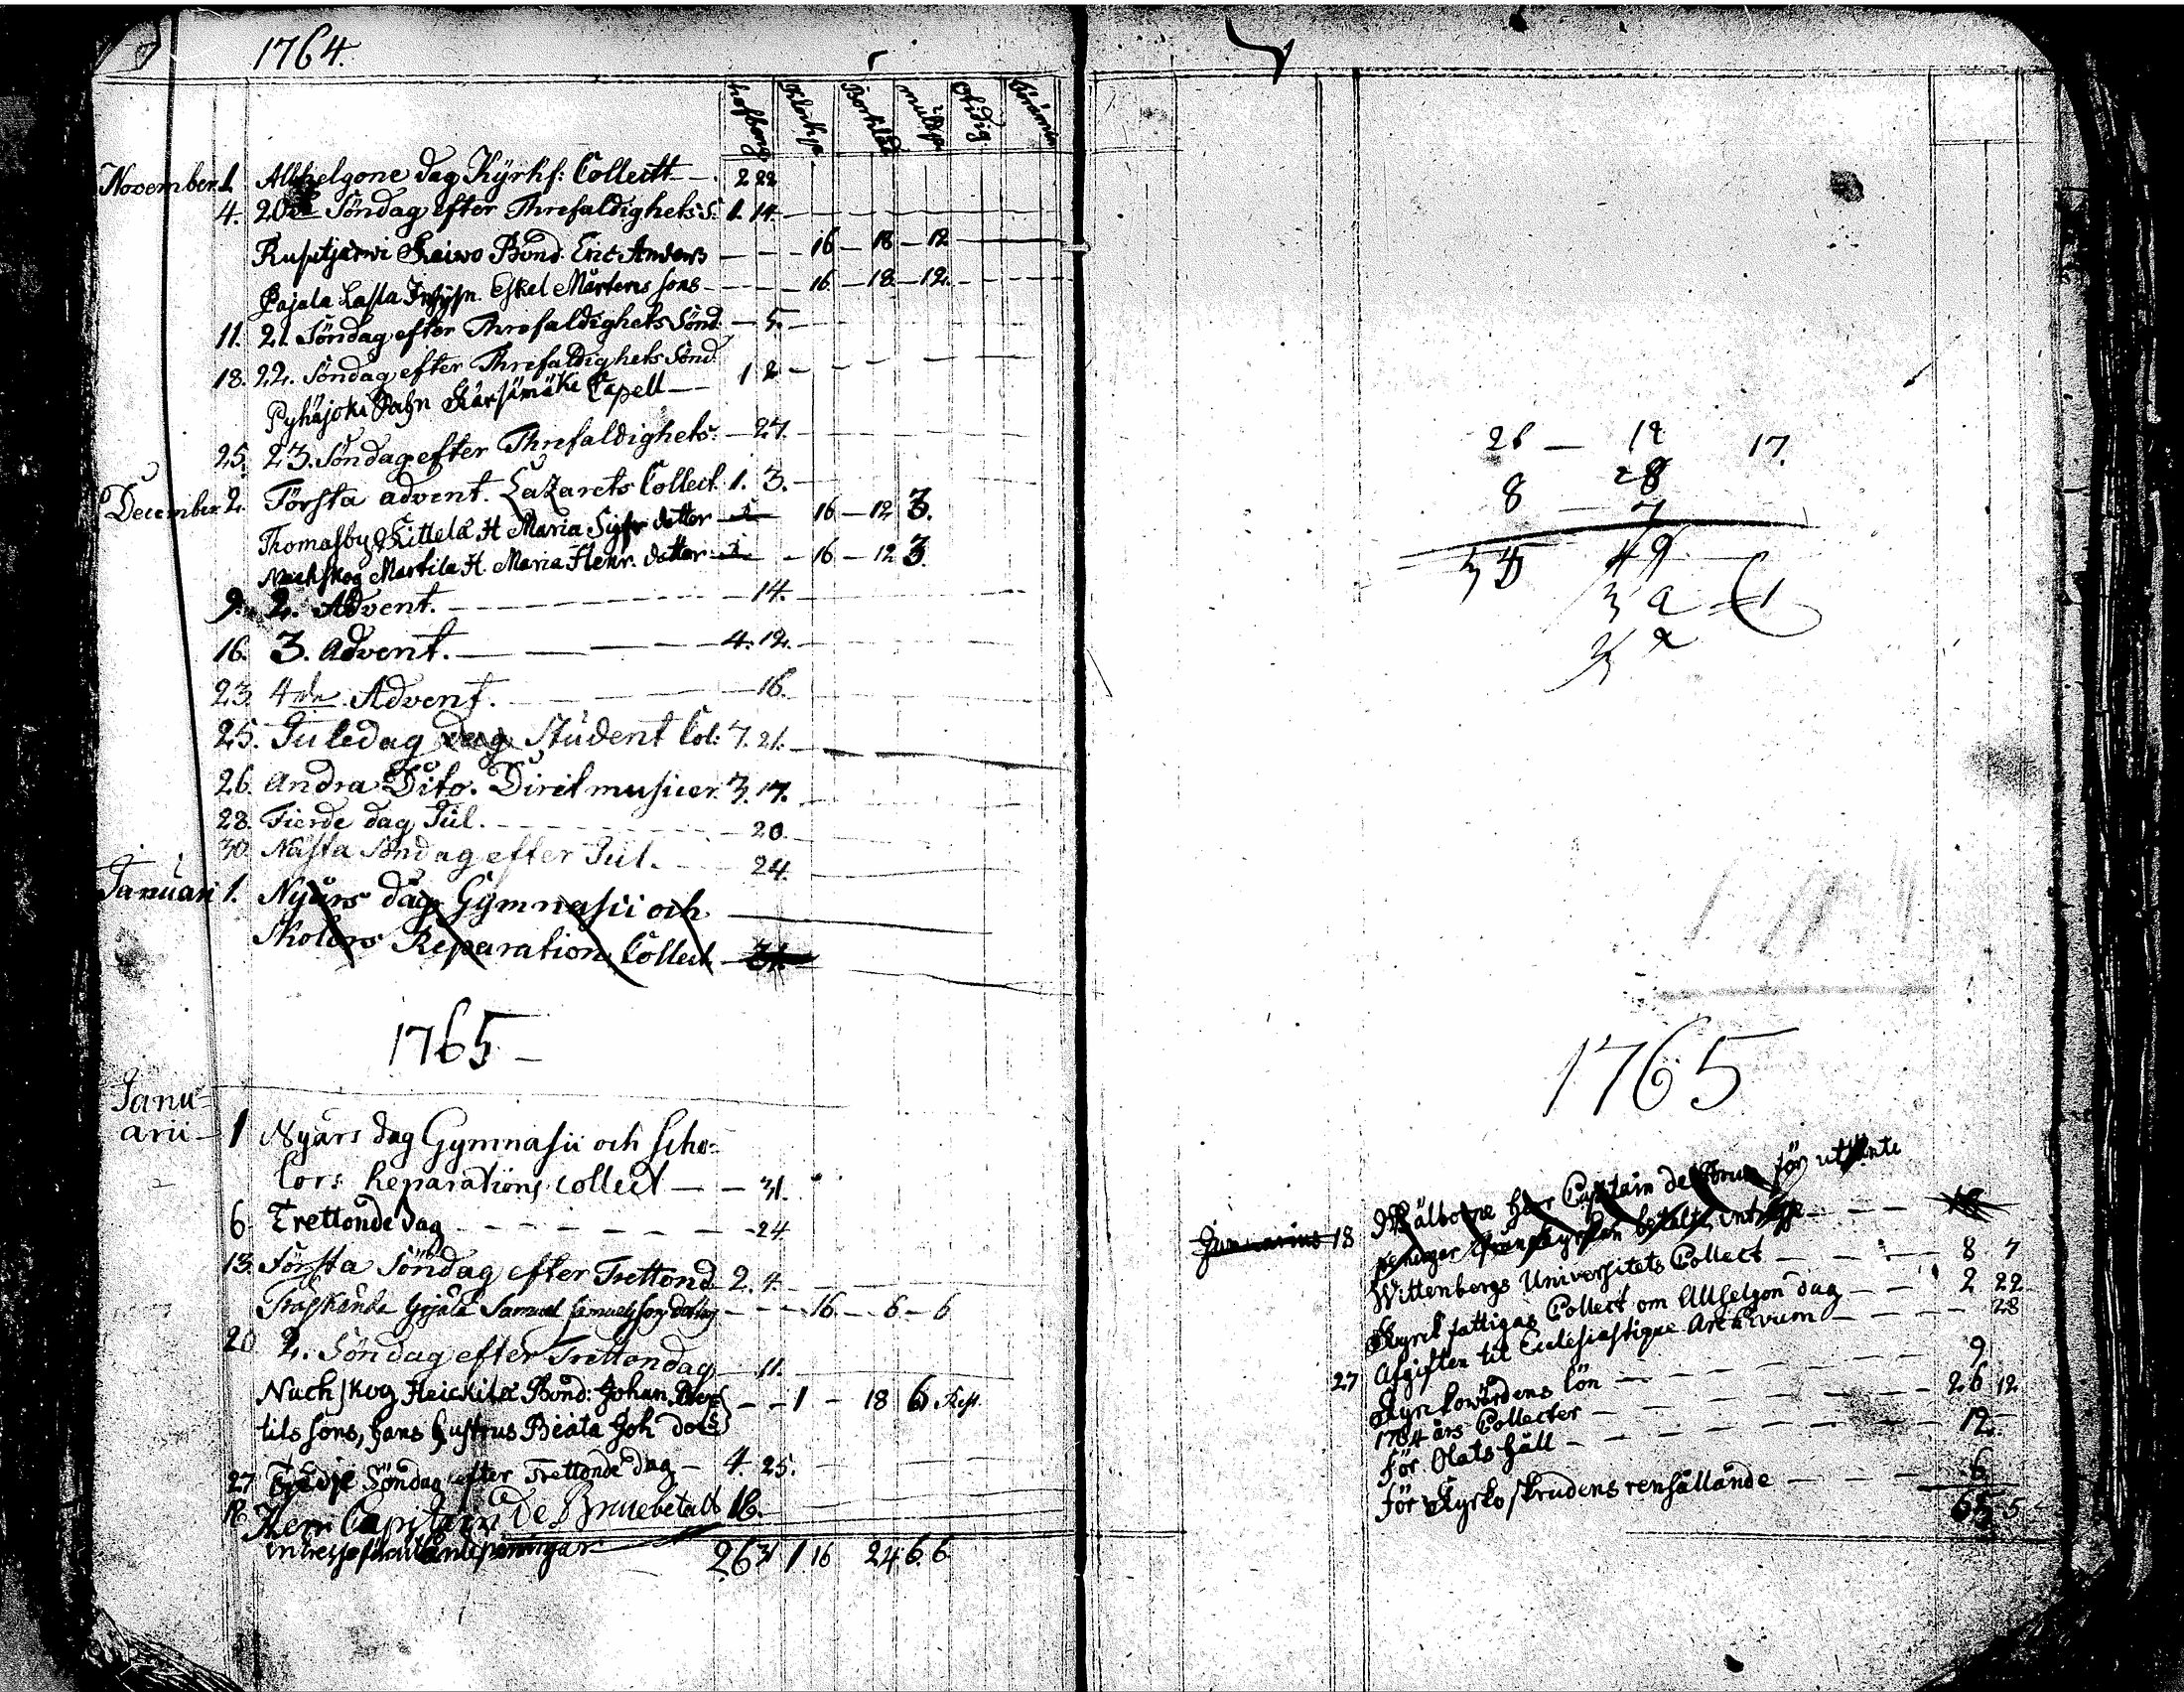 1764.
November 1. Allhelgone dag Kyrkf: Collectt — 2 22
4. 20de Söndag efter Threfaldighets S. 1. 14
Bond. Eric Anders — 16 — 18 — 12
Pajala Eskel Mårtens sons — 16 — 18 — 12.
11. 21. Söndag efter Threfaldighets Sönd — 5.
18. 22. Söndag efter Threfaldighets Sönd. 1 2
Pyhäjoki Sochn Kärsämäki Capell
25. 23. Söndag efter Threfaldighets. — 27.
December 2. Första advent. Lazarets Collect. 1. 3.
Thomasby Kittelä H Maria Sigfr dotter 16 — 12 3.
Nackskog Martila H. Maria Henr. dotter 16 — 12 3.
9. 2. Advent. — 14.
16. 3. Advent. — 4. 12.
23. 4de Advent. — 16.
25. Juledag dag Student Col: 7. 21.
26. Andra Dito. Direct musicer. 3. 17.
28. Fierde dag Jul. — 20.
30. Nästa Söndag efter Jul. — 24.
Januari 1. Nyårs dag Gymnasii och
Skolors Reparation Collect. 31.
1765
Janu=
arii 1 Nyårs dag Gymnasii och Scho=
lors reparations collect — 31.
6. Trettonde dag — 24
13. Första Söndag efter Trettond 2. 4.
Träskända Samuel Samuelsons dotter — 16 — 6 — 6
20 2. Söndag efter Trettondag 11.
Nackskog Heickilä Bond: Johan Ber=
tils sons, hans hustrus Beata Joh dot: — 1 — 18 6 Rest.
27 Tredje Söndag efter Trettonde dag — 4. 25.
18 Herr Capitain De Bruce betalt 16.
263 1 16 24 6 6
26 — 12 17.
8 28
7
1765
Januarius 18 Wälborne Herr Captain de Bruce för utlänte
peningar
Wittenbergs Universitets Collect — 8 7
Kyrck fattigas Collect om Allhelgon dag — 2 22
27 Afgiften til Ecclesiastique Archivum — 28
Kyrkowärdens lön — 9
1764 års Collecter — 26 12
För Olats håll — 12.
för Kyrko skrudens renhållande — 6
65 5